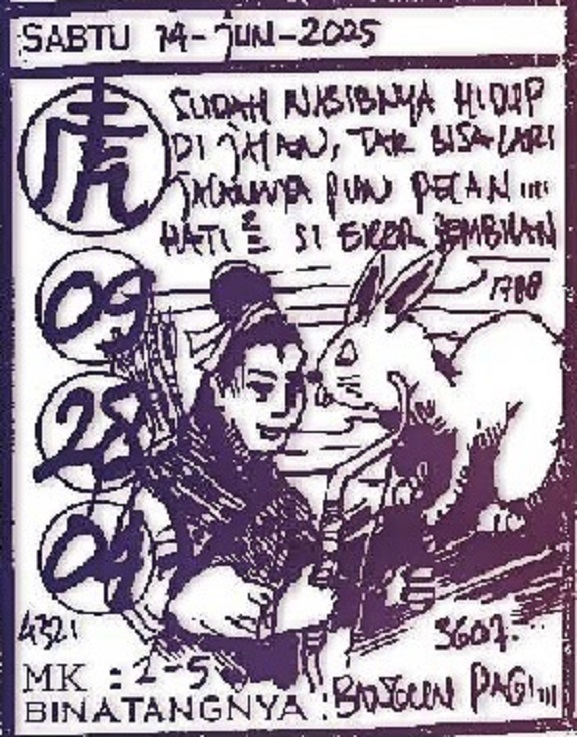 SABTU 14-JUN-2025
虎
SUDAH NASIBNYA HIDUP
DI JALAN, TAK BISA LARI
JALANNYA PUN PELAN....
HATI² SI EKOR SEMBILAN
1788
09
28
04
4321
3607.
MK : 2-5
BINATANGNYA : BANGUN PAGI...